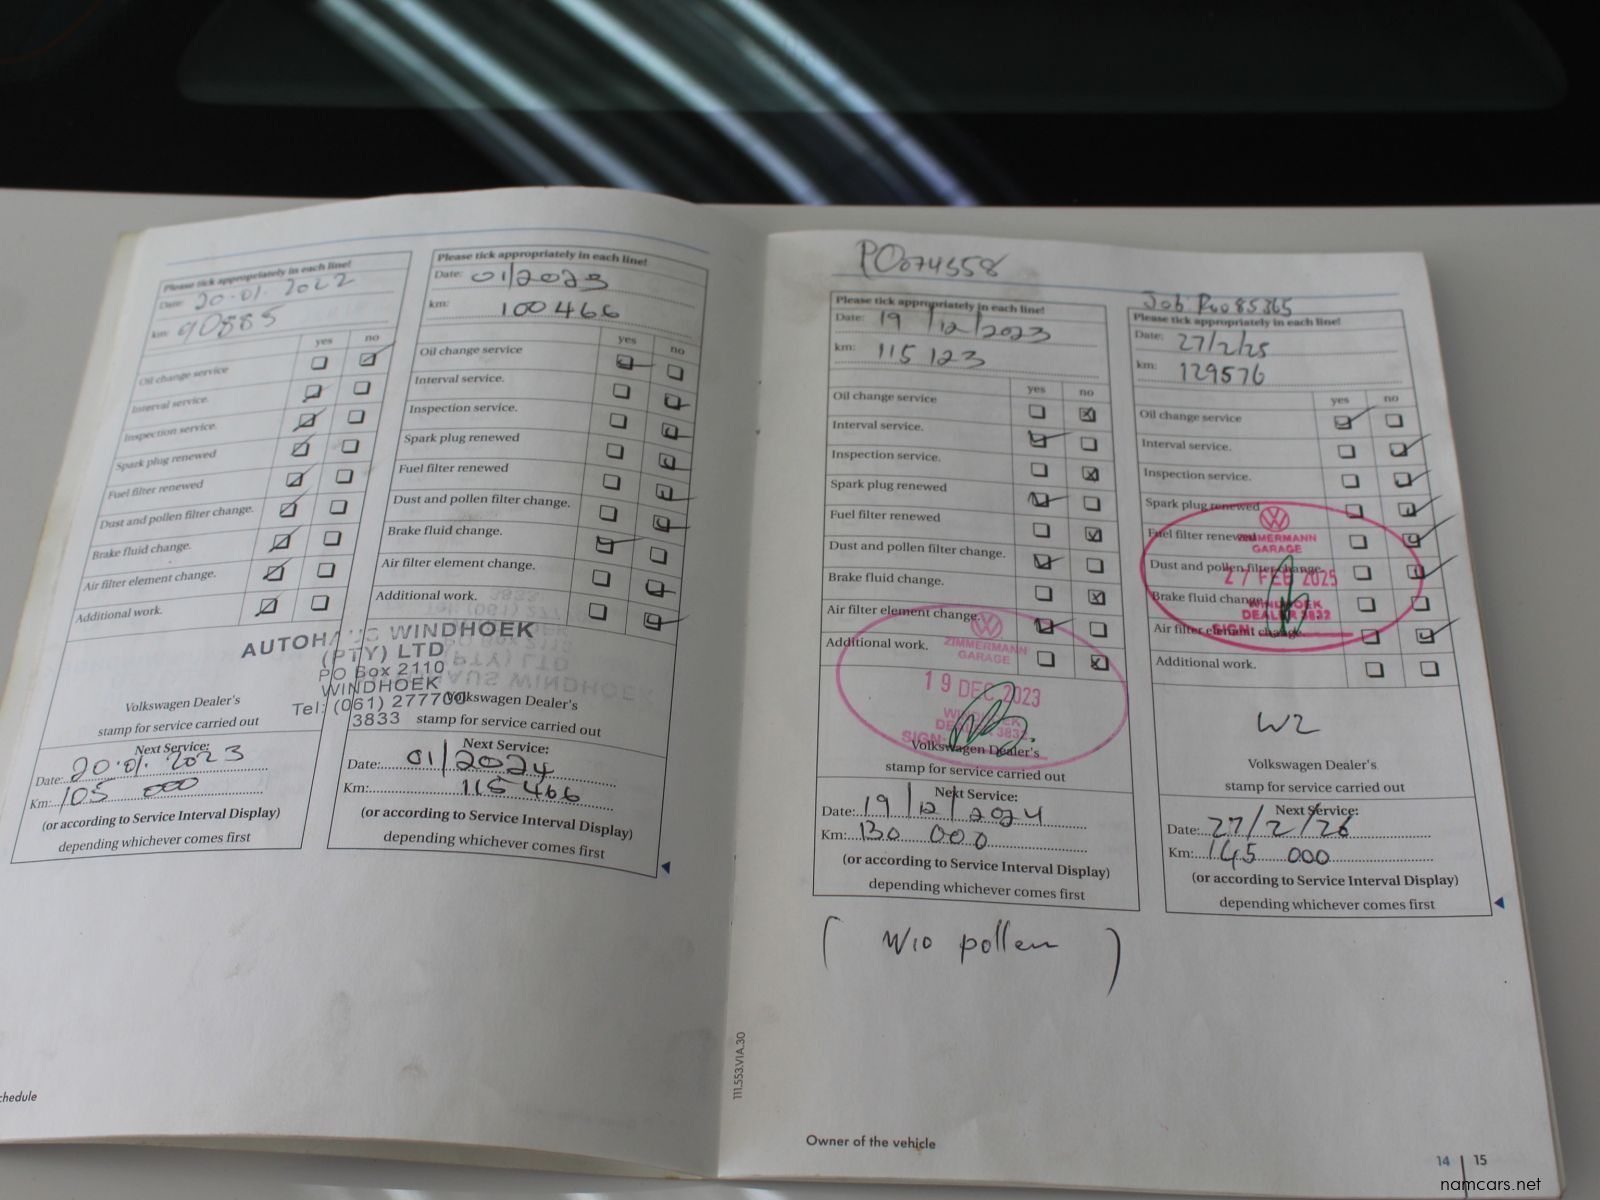 Please tick appropriately in each line!
Date: 20.01.2022
km: 90885
yes no
Oil change service
Interval service.
Inspection service.
Spark plug renewed
Fuel filter renewed
Dust and pollen filter change.
Brake fluid change.
Air filter element change.
Additional work.
AUTOHAUS WINDHOEK
(PTY) LTD
PO Box 2110
WINDHOEK
Tel: (061) 277700
3833
Volkswagen Dealer's
stamp for service carried out
Next Service:
Date: 20.01.2023
Km: 105 000
(or according to Service Interval Display)
depending whichever comes first
Please tick appropriately in each line!
Date: 01/2023
km: 100466
yes no
Oil change service
Interval service.
Inspection service.
Spark plug renewed
Fuel filter renewed
Dust and pollen filter change.
Brake fluid change.
Air filter element change.
Additional work.
Volkswagen Dealer's
stamp for service carried out
Next Service:
Date: 01/2024
Km: 115 466
(or according to Service Interval Display)
depending whichever comes first
chedule
111.553.VIA.30
PO074558
Please tick appropriately in each line!
Date: 19/12/2023
km: 115 123
yes no
Oil change service
Interval service.
Inspection service.
Spark plug renewed
Fuel filter renewed
Dust and pollen filter change.
Brake fluid change.
Air filter element change.
Additional work.
ZIMMERMANN
GARAGE
19 DEC 2023
WINDHOEK
DEALER 3832
SIGN:
Volkswagen Dealer's
stamp for service carried out
Next Service:
Date: 19/12/2024
Km: 130 000
(or according to Service Interval Display)
depending whichever comes first
( W10 pollen )
Job P0085365
Please tick appropriately in each line!
Date: 27/2/25
km: 129576
yes no
Oil change service
Interval service.
Inspection service.
Spark plug renewed
Fuel filter renewed
Dust and pollen filter change.
Brake fluid change.
Air filter element change.
Additional work.
ZIMMERMANN
GARAGE
27 FEB 2025
WINDHOEK
DEALER 3832
SIGN:
W2
Volkswagen Dealer's
stamp for service carried out
Next Service:
Date: 27/2/26
Km: 145 000
(or according to Service Interval Display)
depending whichever comes first
Owner of the vehicle
14 | 15
namcars.net